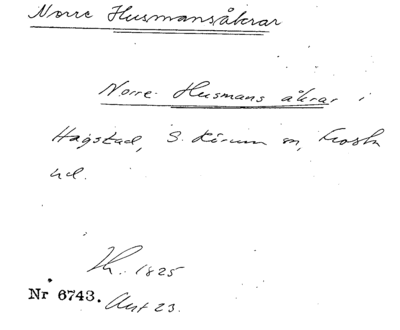 Norre Husmansåkrar
Norre Husmans åkrar i
Hagstad, S. Kirum sn, Frosta
hd.
Lh. 1825
Nr 6743. Akt 23.